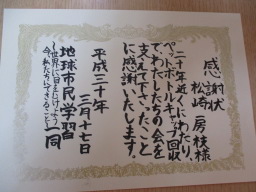 感謝状
松崎 房枝様
二十年近くにわたり、
ペットボトルキャップ回収
で、わたしたちの会を
支えて下さったこと
に感謝いたします。
平成三十年
三月十七日
地球市民学習
一同